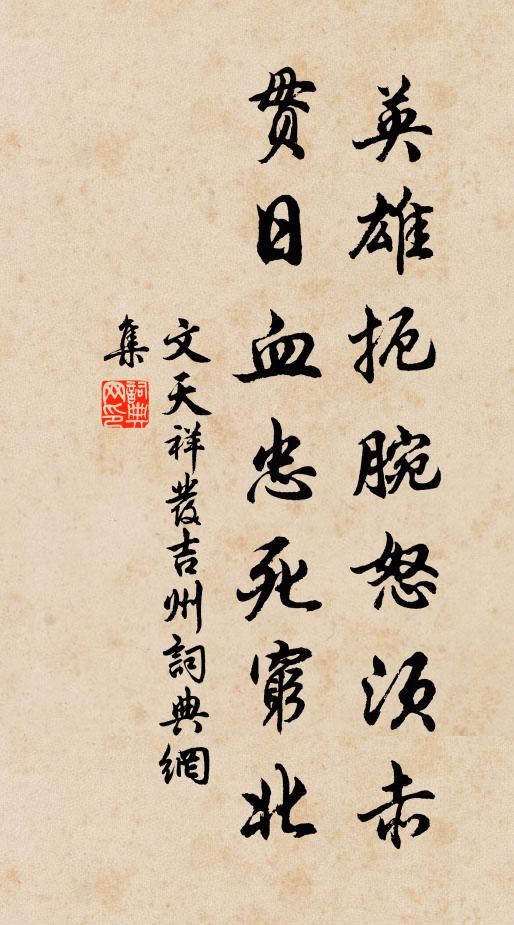 英雄扼腕怒须赤
贯日血忠死穷北
文天祥發吉州詞典網
集
詞典网印